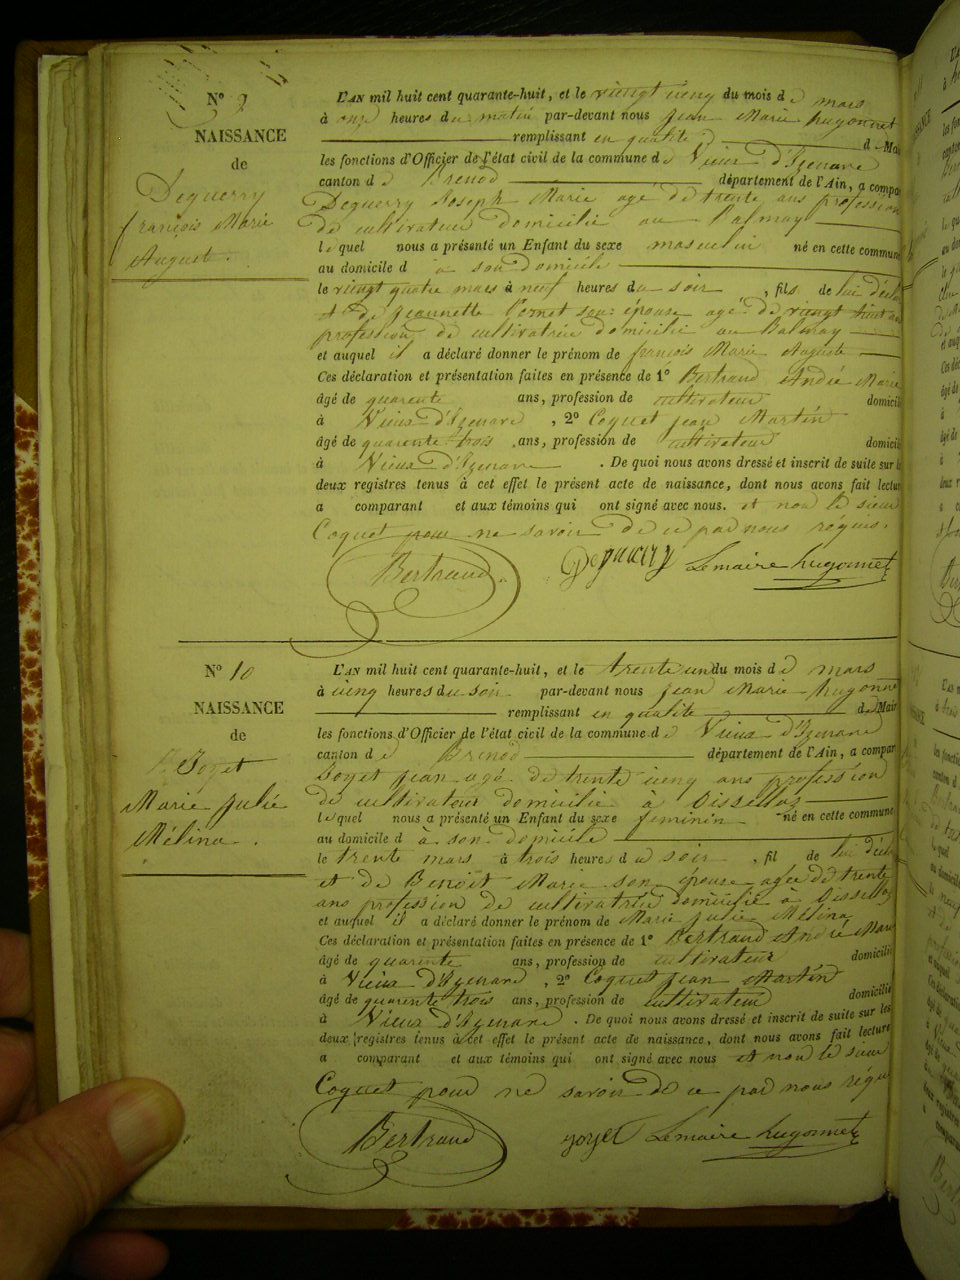 N° 9
NAISSANCE
de
Deguerry
françois Marie
August.
L'AN mil huit cent quarante-huit, et le viengt cieng du mois de mars
à onze heures du matin par-devant nous jean Marie hugonnet
remplissant en qualité d Mai
les fonctions d'Officier de l'état civil de la commune d Vieux d'Izenave
canton d Brenod département de l'Ain, a compa
Deguerry Joseph Marie agé de trente ans profession
de cultivateur domicilié au Balmay
lequel nous a présenté un Enfant du sexe masculin né en cette commune
au domicile d à son domicile
le viengt quatre mars à neuf heures du soir , fils de lui décla
et de jeannette Cornet son épouse agé de viengt huit
profession de cultivatrice domicilié au Balmay
et auquel il a déclaré donner le prénom de françois Marie Auguste
Ces déclaration et présentation faites en présence de 1° Bertraud André Marie
âgé de quarente ans, profession de cultivateur domicili
à Vieux d'Izenave , 2° Coquet jean Martin
âgé de quarente trois ans, profession de cultivateur domicili
à Vieux d'Izenave . De quoi nous avons dressé et inscrit de suite sur le
deux registres tenus à cet effet le présent acte de naissance, dont nous avons fait lectur
a comparant et aux témoins qui ont signé avec nous. et non le sieur
Coquet pour ne savoir De ce par nous réquis.
Bertraud Deguerry Lemaire hugonnet
N° 10
NAISSANCE
de
Joyet
Marie Julie
Mélina.
L'AN mil huit cent quarante-huit, et le trente un du mois d mars
à cieng heures du soir par-devant nous jean Marie hugonne
remplissant en qualité d Mair
les fonctions d'Officier de l'état civil de la commune d Vieux d'Izenave
canton d Brenod département de l'Ain, a compar
Joyet jean agé de trente cieng ans profession
de cultivateur domicilié à
lequel nous a présenté un Enfant du sexe feminin né en cette commune
au domicile d à son domicile
le trente mars à trois heures du soir , fil de lui décla
et de Benoît Marie son épouse agée de trente
ans profession de cultivatrice domicilié à
et auquel il a déclaré donner le prénom de Marie Julie Mélina
Ces déclaration et présentation faites en présence de 1° Bertraud André Mari
âgé de quarente ans, profession de cultivateur domicili
à Vieux d'Izenave , 2° Coquet jean Martin
âgé de quarente trois ans, profession de cultivateur domicilié
à Vieux d'Izenave . De quoi nous avons dressé et inscrit de suite sur les
deux registres tenus à cet effet le présent acte de naissance, dont nous avons fait lecture
a comparant et aux témoins qui ont signé avec nous et non le sieur
Coquet pour ne savoir De ce par nous réqu
Bertraud joyet Lemaire hugonnet